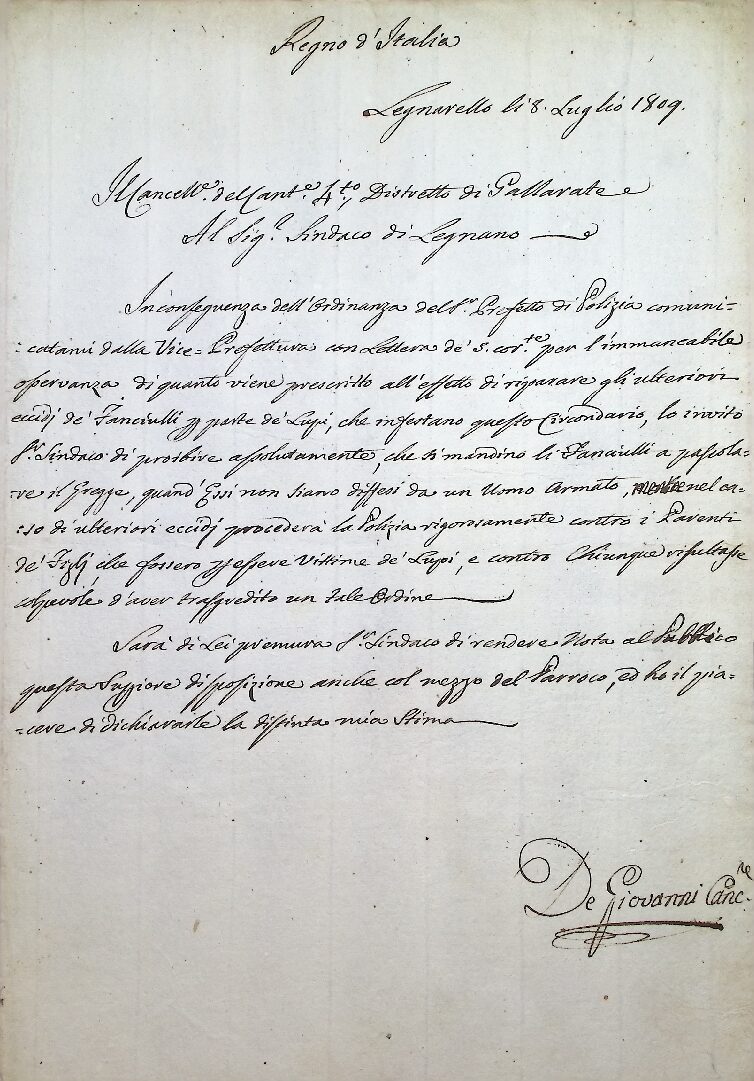 Regno d'Italia
Legnarello li 8. Luglio 1809.
Il Cancell.e del Cant.e 4.to, Distretto di Gallarate
Al Sig.r Sindaco di Legnano
In conseguenza dell'Ordinanza del S.r Prefetto di Polizia comuni=
=catami dalla Vice=Prefettura con Lettera de' 5. cor.te per l'immancabile
osservanza di quanto viene prescritto all'effetto di riparare gli ulteriori
eccidj de' Fanciulli p parte de' Lupi, che infestano questo Circondario, lo invito
S.r Sindaco di proibire assolutamente, che si mandino li Fanciulli a pascola=
=re il Gregge, quand'Essi non siano diffesi da un Uomo Armato, mentre nel ca=
=so di ulteriori eccidj procederà la Polizia rigorosamente contro i Parenti
de' Figlj che fossero p essere Vittime de' Lupi, e contro Chiunque risultasse
colpevole d'aver trasgredito un tale Ordine
Sarà di Lei premura S.r Sindaco di rendere Nota al Pubblico
questa Suppiore disposizione anche col mezzo del Parroco, ed ho il pia=
=cere di dichiararle la distinta mia Stima
De Giovanni Canc.re